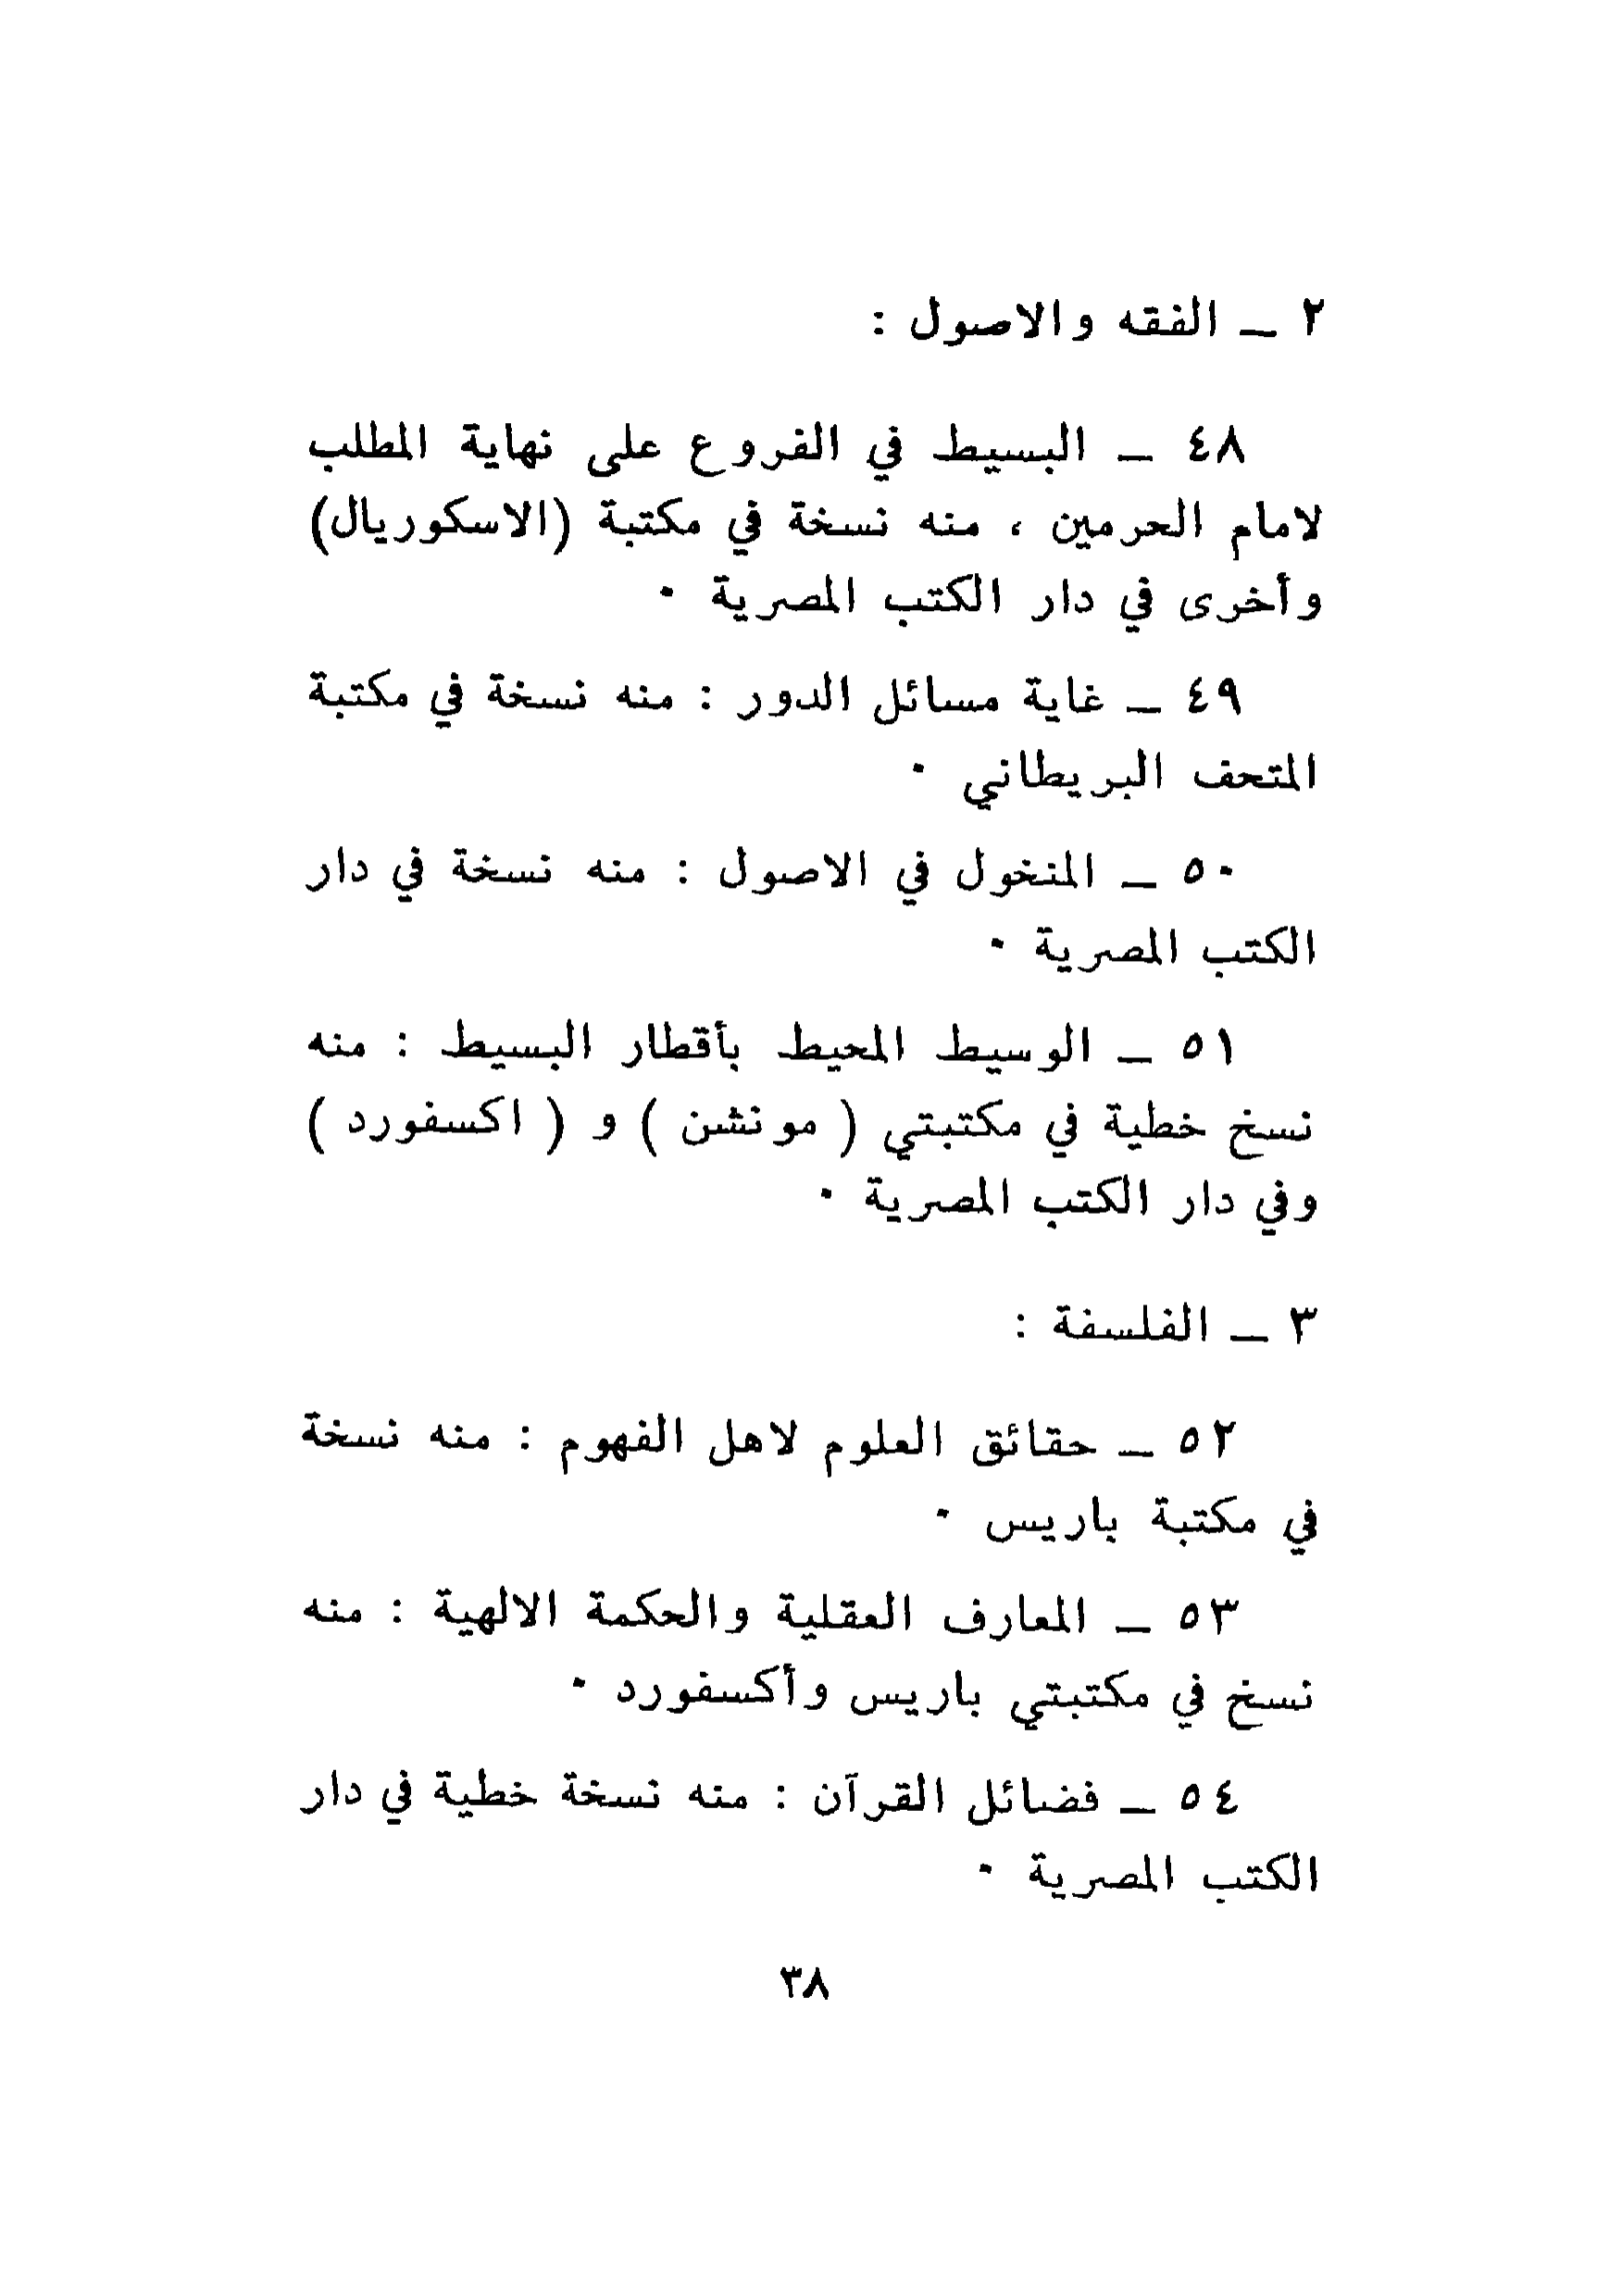 ٢ ــ الفقه والاصول :
٤٨ ــ البسيط في الفروع على نهاية المطلب
لامام الحرمين ، منه نسخة في مكتبة (الاسكوريال)
وأخرى في دار الكتب المصرية ٠
٤٩ ــ غاية مسائل الدور : منه نسخة في مكتبة
المتحف البريطاني ٠
٥٠ ــ المنخول في الاصول : منه نسخة في دار
الكتب المصرية ٠
٥١ ــ الوسيط المحيط بأقطار البسيط : منه
نسخ خطية في مكتبتي ( مونشن ) و ( اكسفورد )
وفي دار الكتب المصرية ٠
٣ ــ الفلسفة :
٥٢ ــ حقائق العلوم لاهل الفهوم : منه نسخة
في مكتبة باريس ٠
٥٣ ــ المعارف العقلية والحكمة الالهية : منه
نسخ في مكتبتي باريس وأكسفورد ٠
٥٤ ــ فضائل القرآن : منه نسخة خطية في دار
الكتب المصرية ٠
٣٨